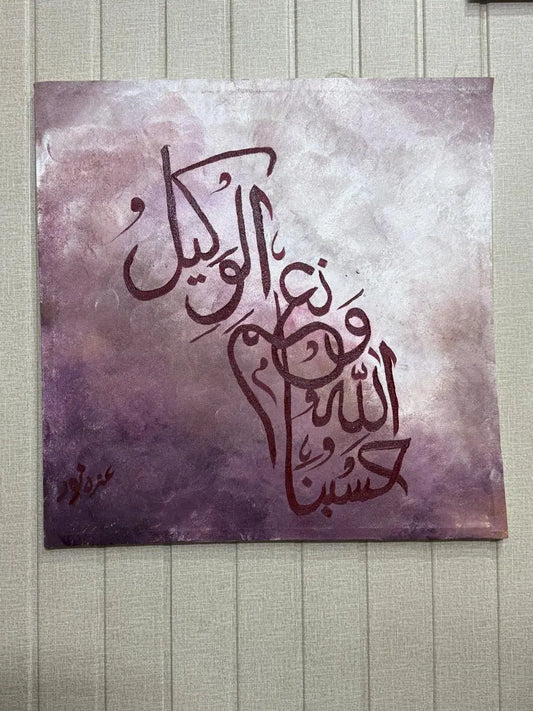 حسبنا
الله
ونعم
الوكيل
عزه نور